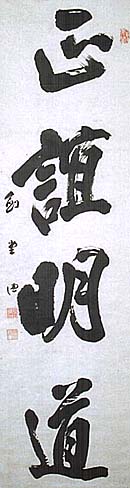 正誼明道